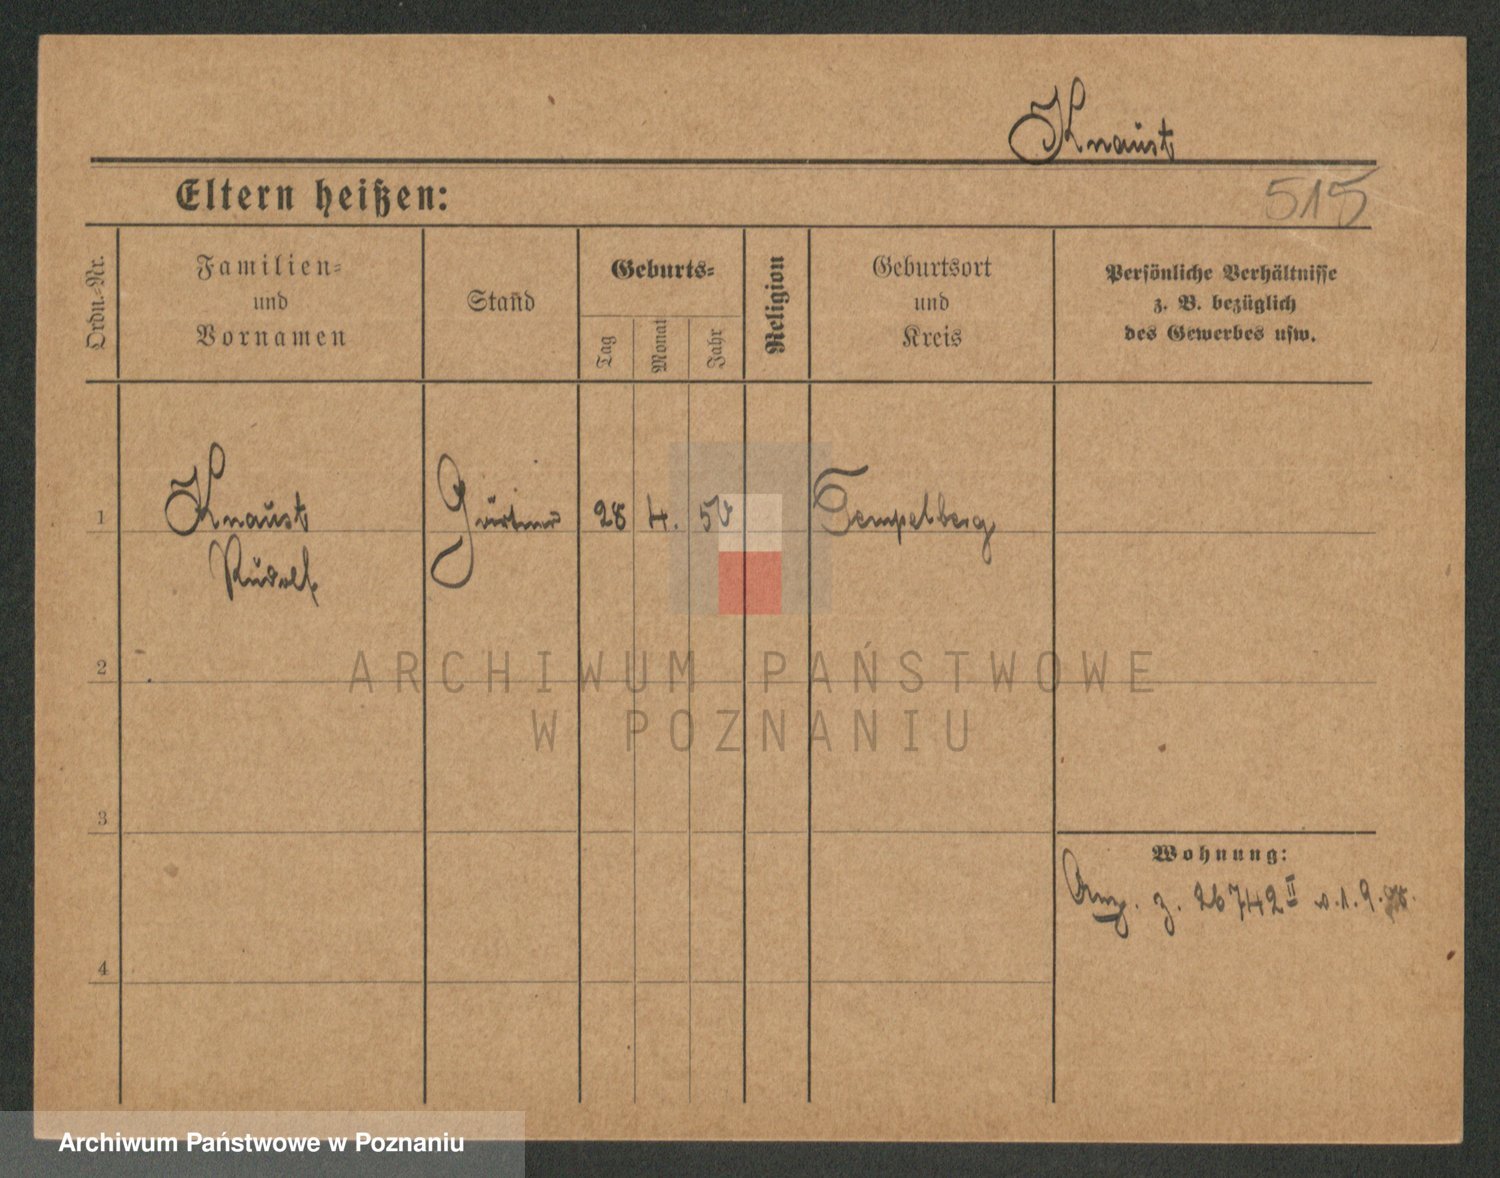 Knaust
Eltern heißen:
515
Ordn.-Nr.
Familien-
und
Vornamen
Stand
Geburts-
Tag
Monat
Jahr
Religion
Geburtsort
und
Kreis
Persönliche Verhältnisse
z. B. bezüglich
des Gewerbes usw.
1 Knaust Gärtner 28 4. 50 Tempelberg
Rudolf
2
3
4
Wohnung:
z. 26742 II v. 1. 9.
ARCHIWUM PAŃSTWOWE
W POZNANIU
Archiwum Państwowe w Poznaniu